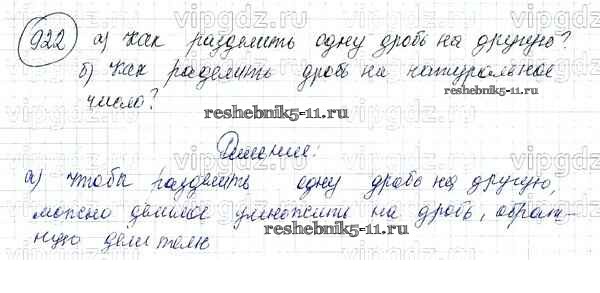 922 а) Как разделить одну дробь на другую?
б) Как разделить дробь на натуральное
число?
reshebnik5-11.ru
reshebnik5-11.ru
Решение:
а) Чтобы разделить одну дробь на другую,
можно делимое умножить на дробь, обрат-
ную делителю
reshebnik5-11.ru